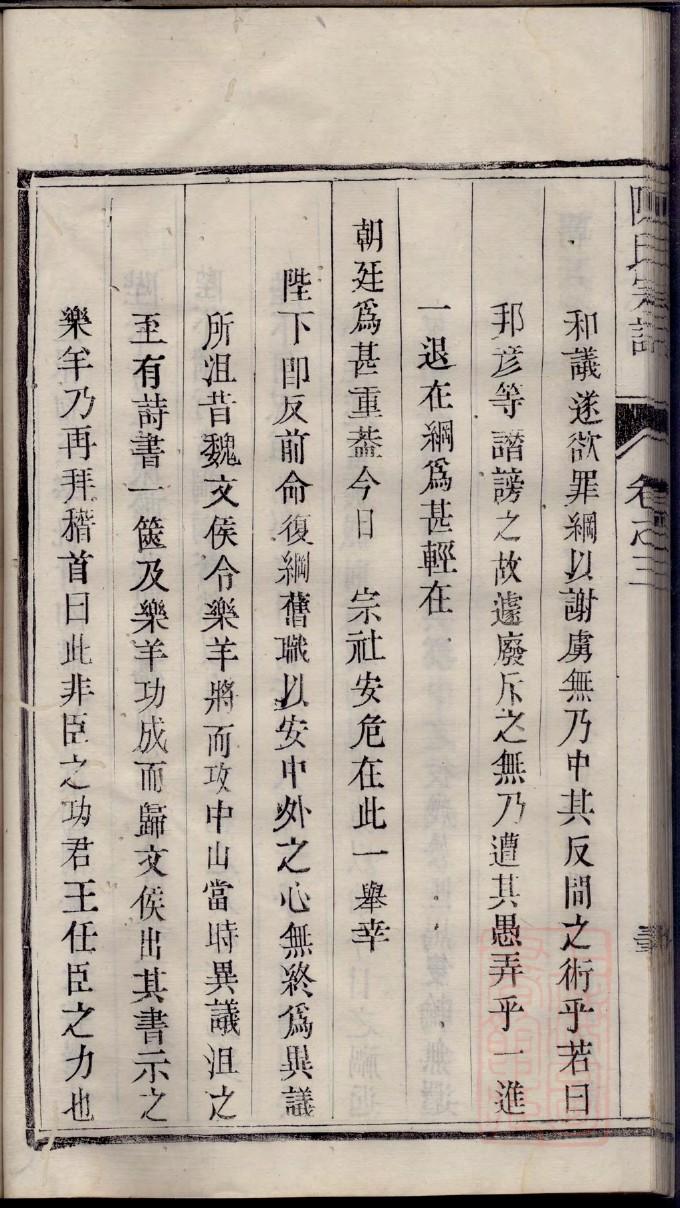 陳氏宗譜 卷之三
和議遂欲罪綱以謝虜無乃中其反間之術乎若曰
邦彥等譖謗之故遽廢斥之無乃遭其愚弄乎一進
一退在綱爲甚輕在
朝廷爲甚重葢今日 宗社安危在此一舉幸
陛下即反前命復綱舊職以安中外之心無終爲異議
所沮昔魏文侯令樂羊將而攻中山當時異議沮之
至有詩書一篋及樂羊功成而歸文侯出其書示之
樂羊乃再拜稽首曰此非臣之功君王任臣之力也